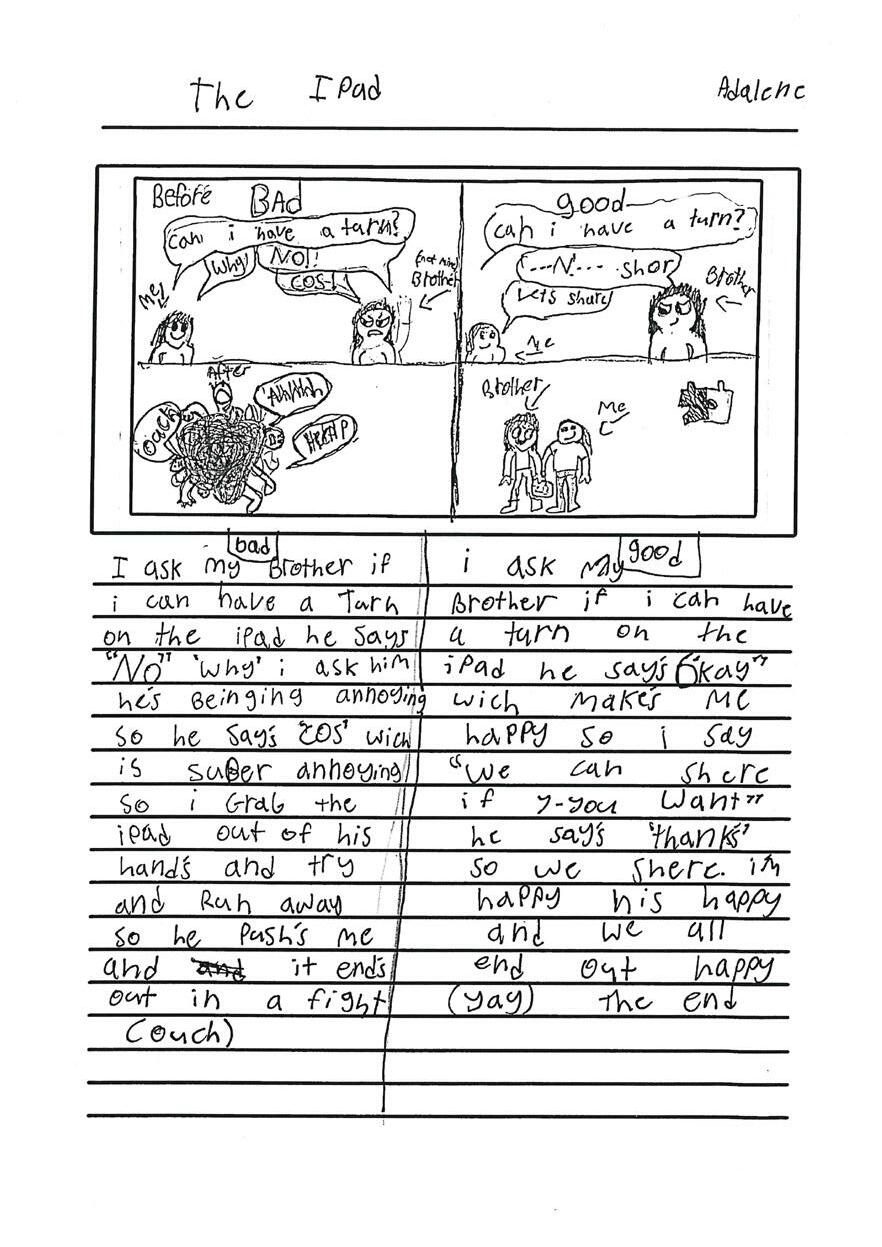 The IPad
Adalene
Before BAD
can i have a turn?
Why
NO!!
cos!
(not mine)
Brother
Me
good
can i have a turn?
---N--- shor
let's share
Brother
Me
After
ouch
Ahhhhh
Brother
Me
bad
I ask my Brother if
i can have a Turn
on the ipad he says
"No" 'why' i ask him
he's Beinging annoying
so he say's 'COS' wich
is super annoying
so i Grab the
ipad out of his
hand's and try
and Run away
so he Push's me
and it end's
out in a fight
(ouch)
good
i ask my
Brother if i can have
a turn on the
iPad he say's "Okay"
wich make's me
happy so i say
"we can shere
if y-you want"
he say's "thanks"
so we shere. i'm
happy his happy
and we all
end out happy
(yay) The end